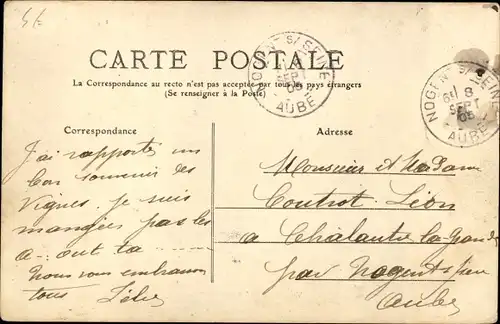 NOGENT S/ SEINE
SEPT
05
AUBE
NOGENT S/ SEINE
8
SEPT
05
AUBE
CARTE POSTALE
La Correspondance au recto n'est pas acceptée par tous les pays étrangers
(Se renseigner à la Poste)
Correspondance
Adresse
J'ai rapporté un
bon souvenir des
Vignes. je suis
mangées pas les
a-out ta
Nous vous embrassons
tous
Monsieur et Madame
Coutrot Léon
a Chalautre la Grande
par Nogent s/ Seine
Aube